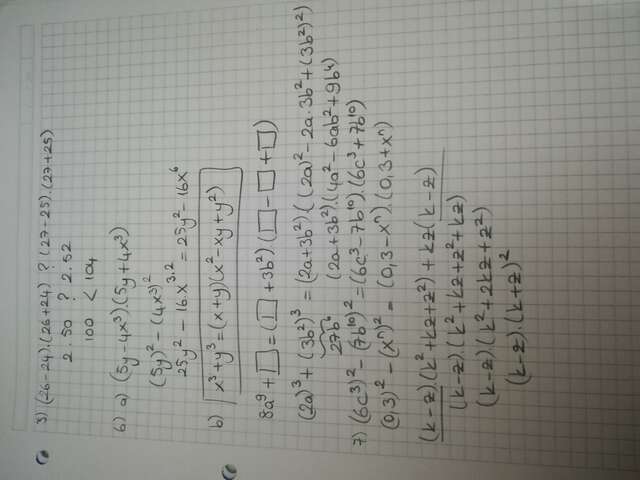 3) (26-24).(26+24) ? (27-25).(27+25)
2.50 ? 2.52
100 < 104
6) a) (5y-4x³).(5y+4x³)
(5y)² - (4x³)²
25y² - 16.x³·² = 25y² - 16x⁶
b) x³+y³ = (x+y)(x²-xy+y²)
8a⁹ + □ = (□ + 3b²).(□ - □ + □)
(2a)³ + (3b²)³ = (2a+3b²)((2a)² - 2a.3b² + (3b²)²)
27b⁶ (2a+3b²).(4a² - 6ab² + 9b⁴)
7) (6c³)² - (7b¹⁰)² = (6c³-7b¹⁰).(6c³+7b¹⁰)
(0,3)² - (xⁿ)² = (0,3-xⁿ).(0,3+xⁿ)
(k-z).(k²+kz+z²) + kz(k-z)
(k-z).(k²+kz+z²+kz)
(k-z).(k²+2kz+z²)
(k-z).(k+z)²